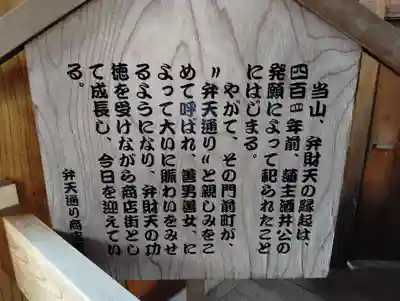 当山、弁財天の縁起は、
四百四年前、藩主酒井公の
発願によって祀られたこと
にはじまる。
やがて、その門前町が、
〝弁天通り〟と親しみをこ
めて呼ばれ、善男善女、に
よって大いに賑わいをみせ
るようになり、弁財天の功
徳を受けながら商店街とし
て成長し、今日を迎えてい
る。
弁天通り商店